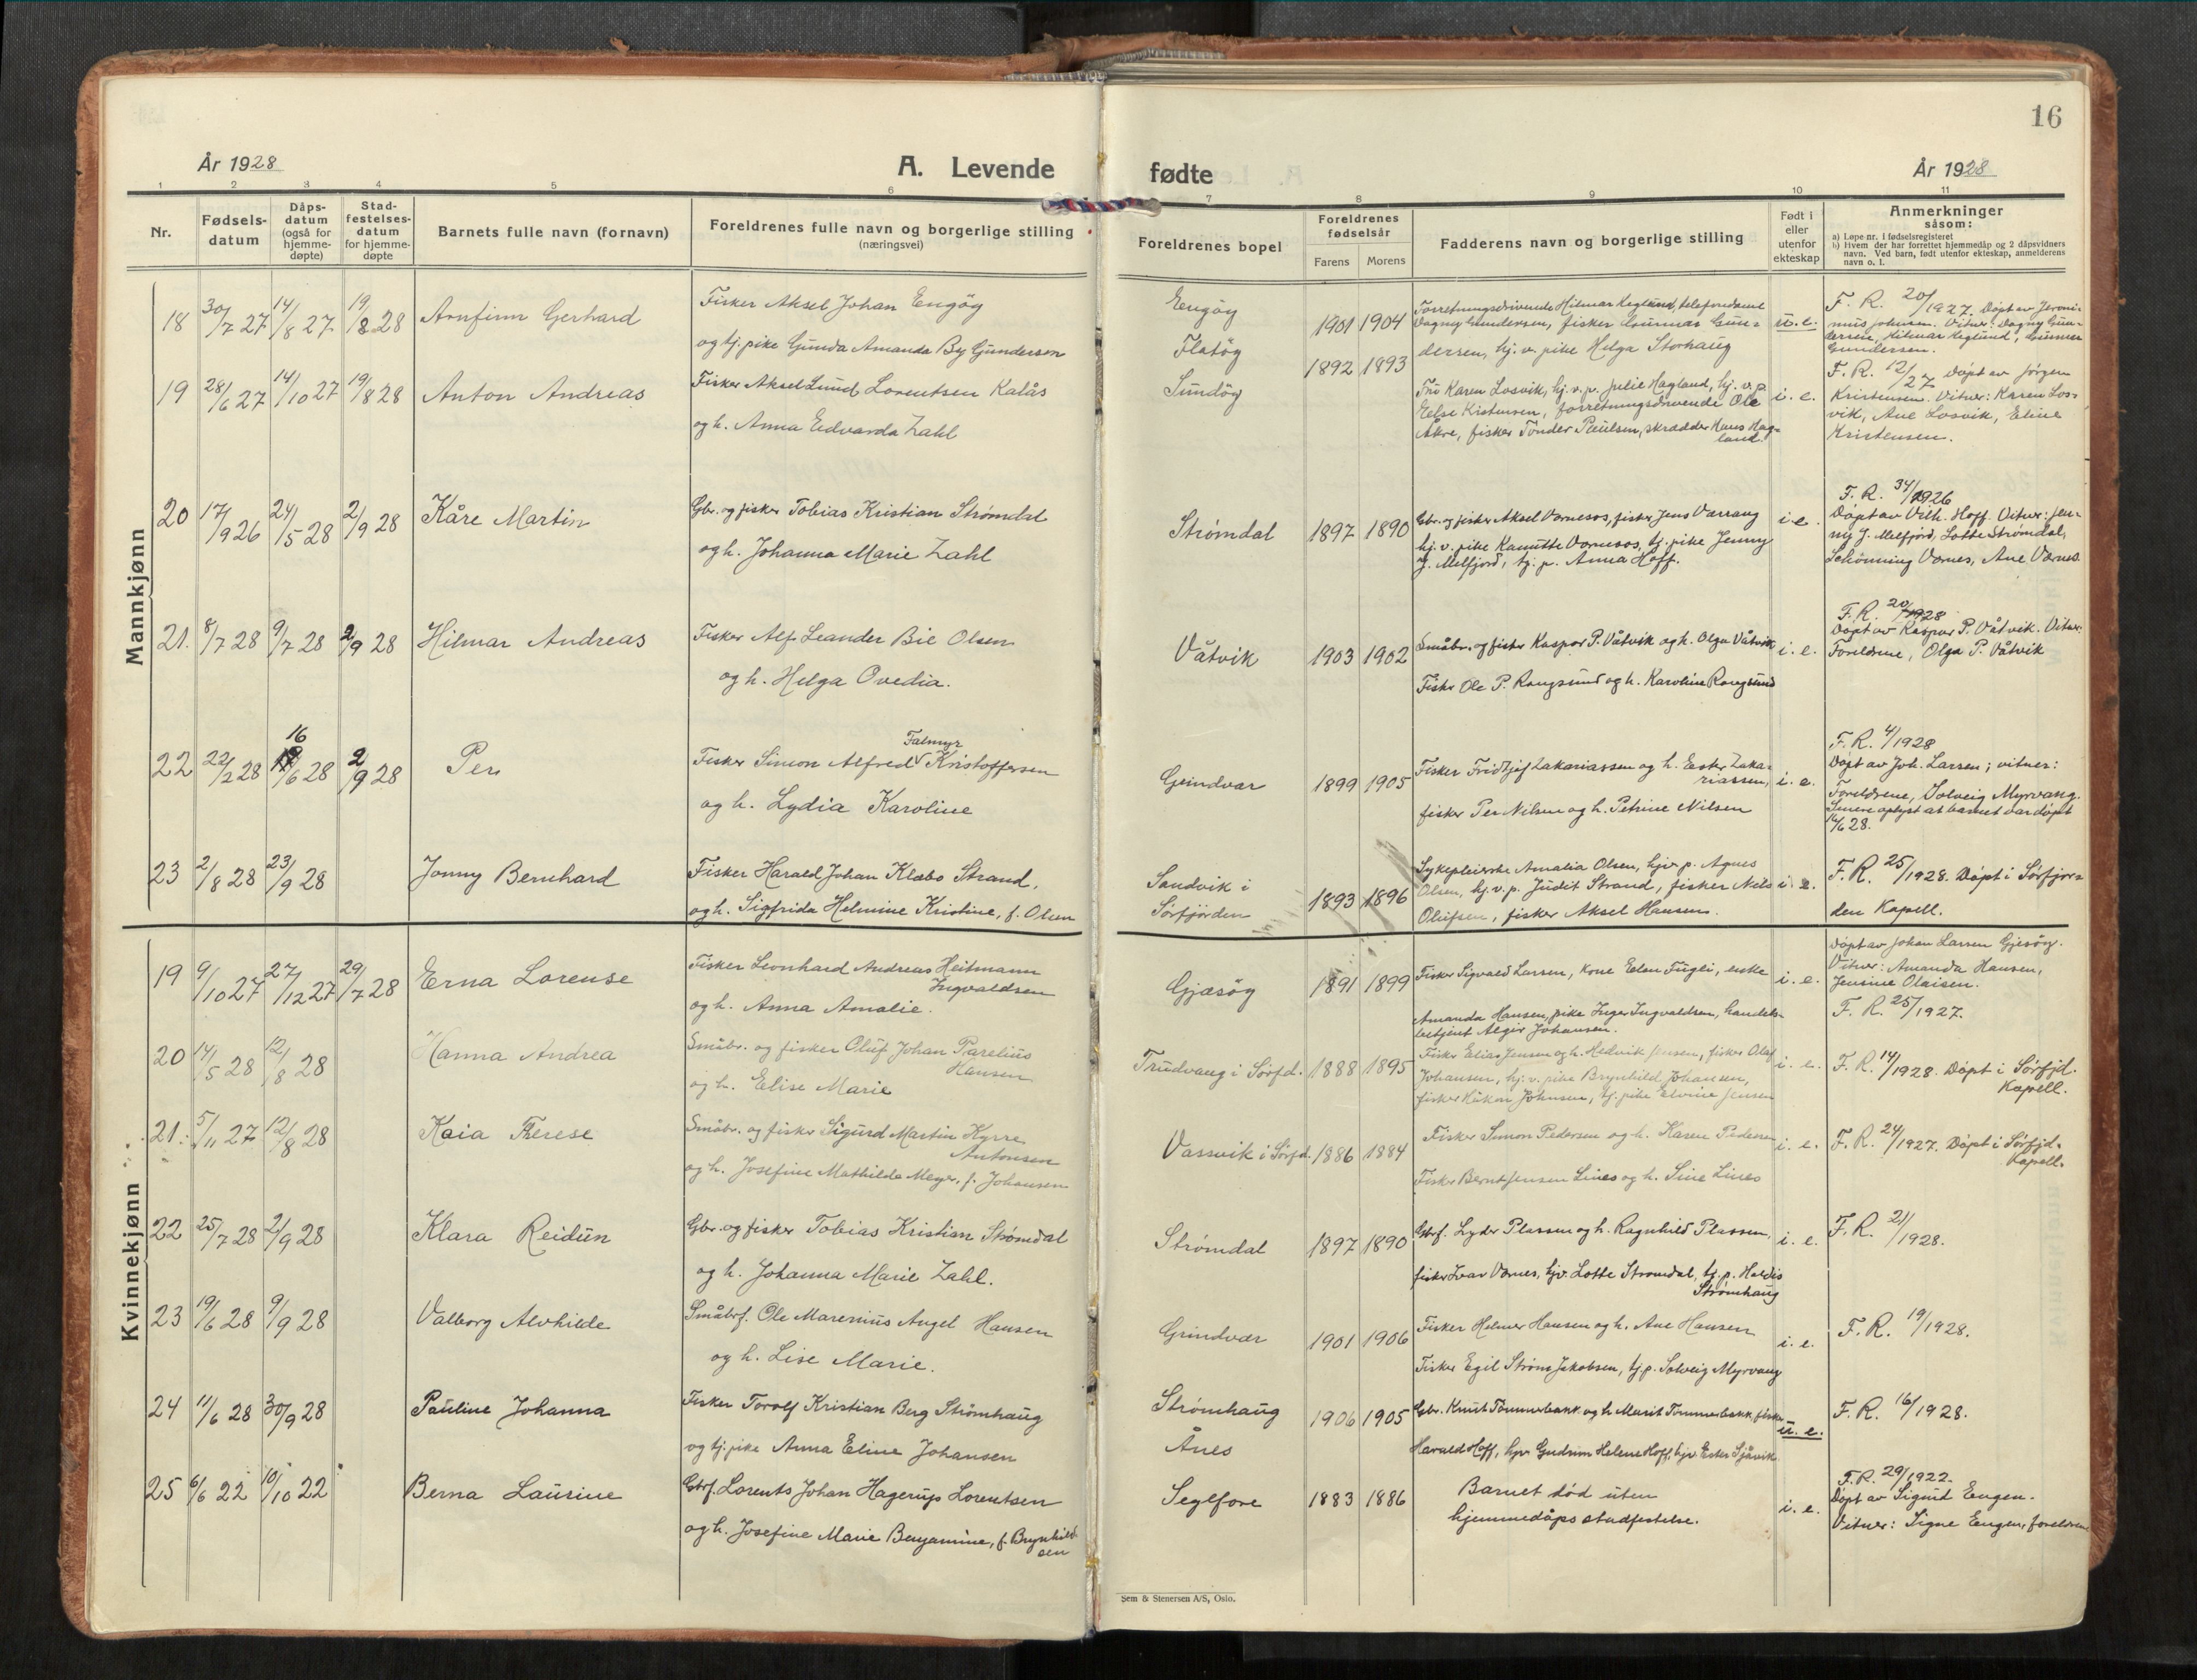 16
År 1928
A. Levende fødte
År 1928
1 2 3 4 5 6 7 8 9 10 11
Nr.
Fødsels-
datum
Dåps-
datum
(også for
hjemme-
døpte)
Stad-
festelses-
datum
for hjemme-
døpte
Barnets fulle navn (fornavn)
Foreldrenes fulle navn og borgerlige stilling
(næringsvei)
Foreldrenes bopel
Foreldrenes
fødselsår
Farens Morens
Fadderens navn og borgerlige stilling
Født i
eller
utenfor
ekteskap
Anmerkninger
såsom:
a) Løpe nr. i fødselsregisteret
b) Hvem der har forrettet hjemmedåp og 2 dåpsvidners
navn. Ved barn, født utenfor ekteskap, anmelderens
navn o. l.
Mannkjønn
18 30/7 27 14/8 27 19/8 28 Arnfinn Gerhard
Fisker Aksel Johan Engøy
og tj. pike Gunda Amanda By Gundersen
Engøy
Flatøy
1901 1904
Forretningsdrivende Hilmar Keglund, telefondame
Dagny Gundersen, fisker Gunnar Gun-
dersen, hj. v. pike Helga Storhaug
u. e.
F. R. 20/1927. Døpt av Jeroni-
mus Johnsen. Vitner: Dagny Gun-
dersen, Hilmar Keglund, Gunnar
Gundersen.
19 28/6 27 14/10 27 19/8 28 Anton Andreas
Fisker Aksel Lund Lorentsen Kalås
og h. Anna Edvarda Zahl
Sundøy
1892 1893
Fru Karen Losvik, hj. v. p. Julie Hagland, hj. v. p.
Else Kistensen, forretningsdrivende Ole
Åkre, fisker Tønder Paulsen, skrædder Hans Hag-
land.
i. e.
F. R. 12/27 Døpt av Jørgen
Kristensen. Vitner: Karen Los-
vik, Ane Losvik, Eline
Kristensen.
20 17/9 26 24/5 28 2/9 28 Kåre Martin
Gbr. og fisker Tobias Kristian Strømdal
og h. Johanna Marie Zahl
Strømdal
1897 1890
Gbr. og fisker Aksel Værnesos, fisker Jens Værang
hj. v. pike Kanutte Værnesos, tj. pike Jenny
J. Melfjord, tj. p. Anna Hoff.
i. e.
F. R. 34/1926
Døpt av Vilh. Hoff. Vitner: Jen-
ny J. Melfjord, Lotte Strømdal,
Schønning Værnes, Ane Værnes.
21. 8/7 28 9/7 28 2/9 28 Hilmar Andreas
Fisker Alf Leander Bie Olsen
og h. Helga Ovedia.
Våtvik
1903 1902
Småbr. og fisker Kaspar P. Våtvik og h. Olga Våtvik
Fisker Ole P. Rangsund og h. Karoline Rangsund
i. e.
F. R. 20/1928
Døpt av Kaspar P. Våtvik. Vitner:
Foreldrene, Olga P. Våtvik
22 22/2 28 16/6 28 2/9 28 Per
Falmyr
Fisker Simon Alfred Kristoffersen
og h. Lydia Karoline
Grindvær
1899 1905
Fisker Fridtjof Zakariassen og h. Ester Zaka-
riassen,
fisker Per Nilsen og h. Petrine Nilsen
i. e.
F. R. 4/1928
Døpt av Joh. Larsen; vitner:
Foreldrene, Solveig Myrvang.
Senere oplyst at barnet var døpt
16/6 28.
23 2/8 28 23/9 28 Jonny Bernhard
Fisker Harald Johan Klæbo Strand,
og h. Sigfrida Helmine Kristine, f. Olsen
Sandvik i
Sørfjorden
1893 1896
Sykepleierske Amalia Olsen, hjv. p. Agnes
Olsen, hj. v. p. Judit Strand, fisker Nils
Olufsen, fisker Aksel Hansen.
i. e.
F. R. 25/1928. Døpt i Sørfjor-
den Kapell.
Kvinnekjønn
19 9/10 27 27/12 27 29/7 28 Erna Lorense
Fisker Leonhard Andreas Heitmann
Ingvaldsen
og h. Anna Amalie.
Gjæsøy
1891 1899
Fisker Sigvald Larsen, kone Elen Fugli, enke
Amanda Hansen, pike Inger Ingvaldsen, handels-
betjent Aegir Johansen.
i. e.
Døpt av Johan Larsen Gjesøy.
Vitner: Amanda Hansen,
Jensine Olaisen.
F. R. 25/1927.
20 14/5 28 12/8 28 Hanna Andrea
Småbr. og fisker Oluf Johan Parelius
Hansen
og h. Elise Marie
Trudvang i Sørfd.
1888 1895
Fisker Elias Jensen og h. Hedvik Jensen, fisker Olaf
Johansen, hj. v. pike Brynhild Johansen,
fisker Håkon Johnsen, tj. pike Elvine Jensen
i. e.
F. R. 14/1928. Døpt i Sørfjd.
Kapell.
21. 5/11 27 12/8 28 Kaia Therese
Småbr. og fisker Sigurd Martin Kyrre
Antonsen
og h. Josefine Mathilde Meyer, f. Johansen
Vassvik i Sørfd.
1886 1884
Fisker Simon Pedersen og h. Karen Pedersen
Fisker Bernt Jensen Lines og h. Sine Lines
i. e.
F. R. 24/1927. Døpt i Sørfjd.
Kapell.
22 25/7 28 2/9 28 Klara Reidun
Gbr. og fisker Tobias Kristian Strømdal
og h. Johanna Marie Zahl.
Strømdal
1897 1890
Gbrf. Lyder Plassen og h. Ragnhild Plassen,
fisker Ivar Værnes, hjv. Lotte Strømdal, tj. p. Haldis
Strømhaug
i. e.
F. R. 21/1928.
23 19/6 28 9/9 28 Valborg Alvhilde
Småbrf. Ole Marenius Angel Hansen
og h. Lise Marie.
Grindvær
1901 1906
Fisker Helmer Hansen og h. Ane Hansen
Fisker Egil Strøm Jakobsen, tj. p. Solveig Myrvang
i. e.
F. R. 19/1928.
24 11/6 28 30/9 28 Pauline Johanna
Fisker Torolf Kristian Berg Strømhaug
og tj. pike Anna Eline Johansen
Strømhaug
Ånes
1906 1905
Gbr. Knut Tømmerbakk og h. Marit Tømmerbakk, fisker
Harald Hoff, hjv. Gudrun Helene Hoff, hjv. Ester Sjåvik
u. e.
F. R. 16/1928.
25 6/6 22 10/10 22 Berna Laurine
Gbrf. Lorents Johan Hagerup Lorentsen
og h. Josefine Marie Benjamine, f. Brynhild-
sen
Seglfore
1883 1886
Barnet død uten
hjemmedåps stadfestelse.
i. e.
F. R. 29/1922.
Døpt av Sigurd Engen.
Vitner: Signe Engen, foreldrene
Sem & Stenersen A/S, Oslo.